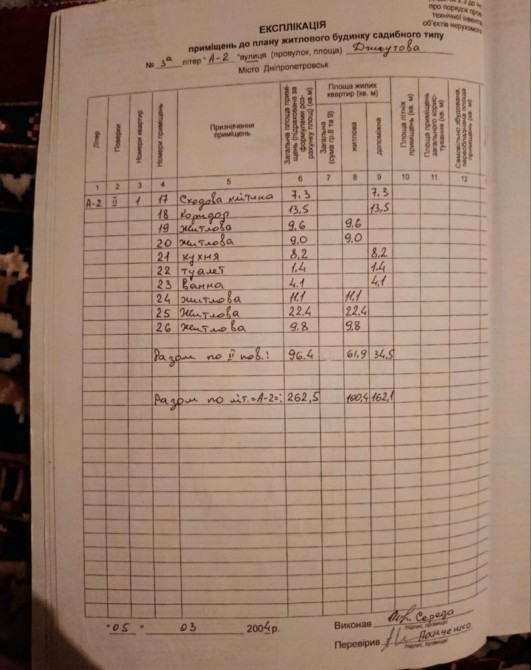 про порядок
технічної
об'єктів нерухомого
ЕКСПЛІКАЦІЯ
приміщень до плану житлового будинку садибного типу
№ 3а літер "А-2" вулиця (провулок, площа)
Місто Дніпропетровськ
Літер Поверхи Номери квартир Номери приміщень Призначення приміщень Загальна площа приміщень (підрахована за формулами розрахунку площ) (кв.м) Площа жилих квартир (кв. м) Загальна (сума гр.8 та 9) житлова допоміжна Площа літніх приміщень (кв. м) Площа приміщень загального користування (кв. м) Самовільно збудована, переобладнана площа приміщень (кв. м)
1 2 3 4 5 6 7 8 9 10 11 12
А-2 ІІ 1 17 Сходова клітина 7,3 7,3
18 коридор 13,5 13,5
19 житлова 9,6 9,6
20 житлова 9,0 9,0
21 кухня 8,2 8,2
22 туалет 1,4 1,4
23 ванна 4,1 4,1
24 житлова 11,1 11,1
25 житлова 22,4 22,4
26 житлова 9,8 9,8
Разом по ІІ пов.: 96,4 61,9 34,5
Разом по літ. "А-2": 262,5 100,4 162,1
"05" 03 2004 р.
Виконав Середа
Перевірив